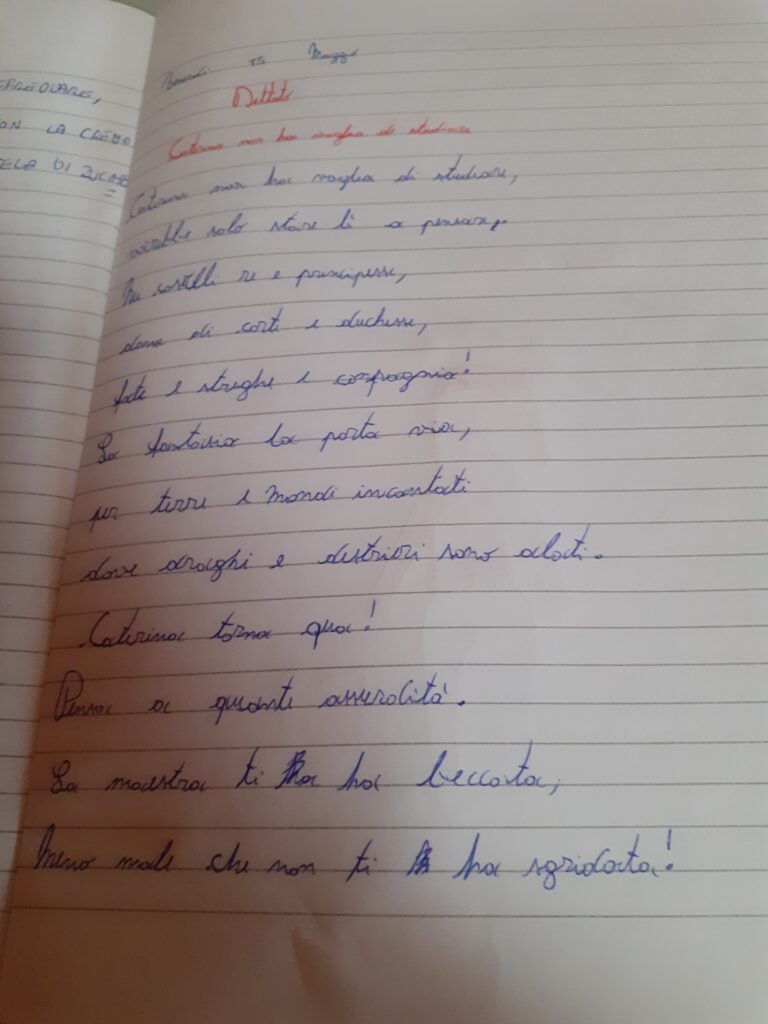 ON LA CREMA
Venerdì 15 Maggio
Dettato
Caterina non ha voglia di studiare
Caterina non ha voglia di studiare,
vorrebbe solo stare lì a pensare,
Nei castelli re e principesse,
dame di corti e duchesse,
fate e streghe e compagnia!
La fantasia la porta via,
per terre e mondi incantati
dove draghi e destrieri sono alati.
Caterina torna qua!
Pensa a quante assurdità.
La maestra ti ha beccata,
Meno male che non ti ha sgridata!